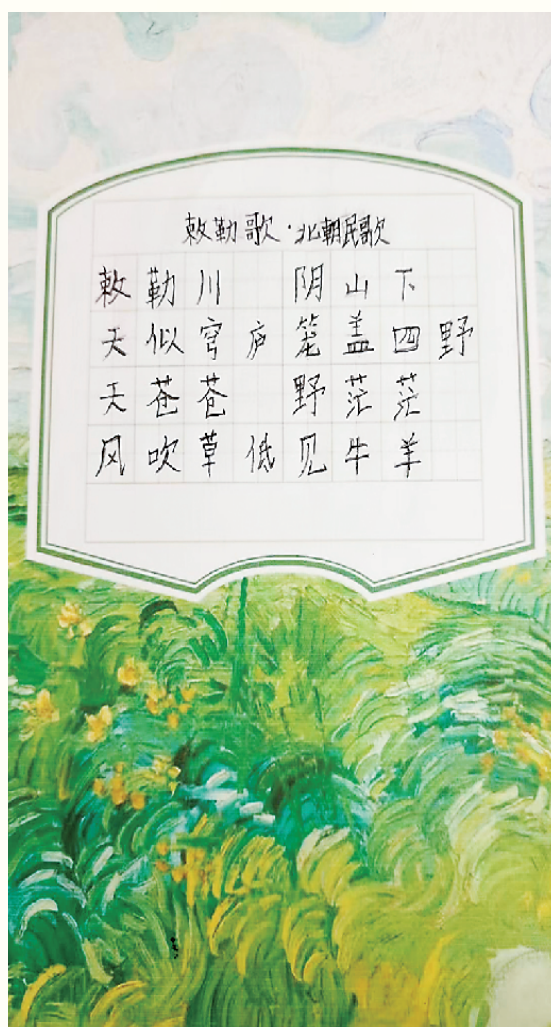 敕勒歌·北朝民歌
敕勒川 阴山下
天似穹庐 笼盖四野
天苍苍 野茫茫
风吹草低见牛羊